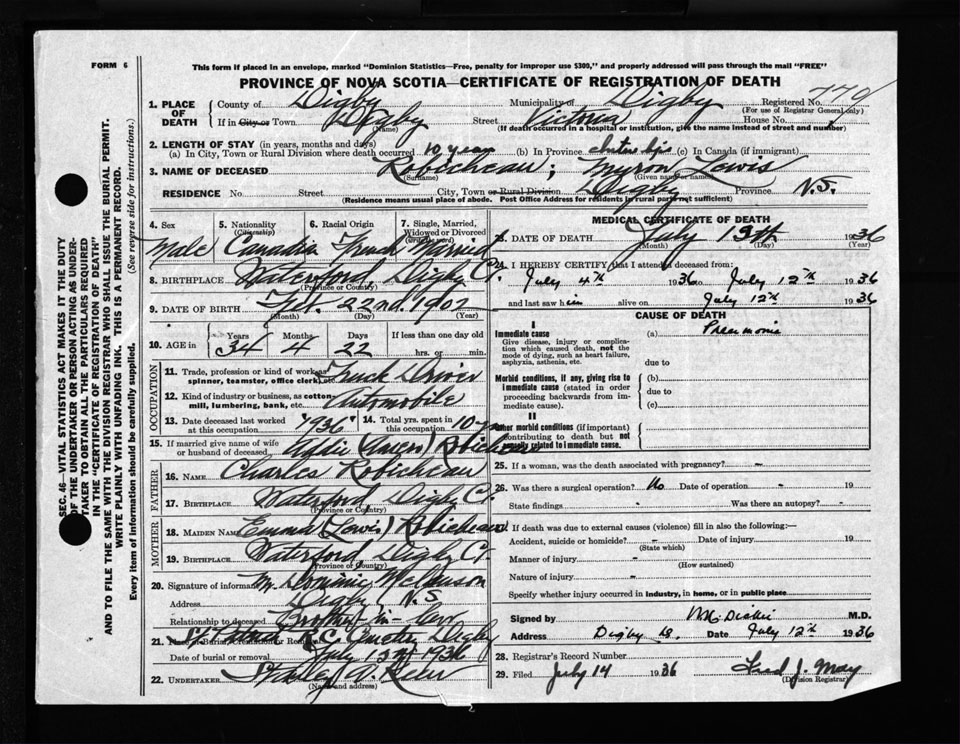 FORM 6
This form if placed in an envelope, marked "Dominion Statistics—Free, penalty for improper use $300," and properly addressed will pass through the mail "FREE"
PROVINCE OF NOVA SCOTIA—CERTIFICATE OF REGISTRATION OF DEATH
SEC. 46—VITAL STATISTICS ACT MAKES IT THE DUTY
OF THE UNDERTAKER OR PERSON ACTING AS UNDER-
TAKER TO OBTAIN ALL THE PARTICULARS REQUIRED
IN THE "CERTIFICATE OF REGISTRATION OF DEATH"
AND TO FILE THE SAME WITH THE DIVISION REGISTRAR WHO SHALL ISSUE THE BURIAL PERMIT.
WRITE PLAINLY WITH UNFADING INK. THIS IS A PERMANENT RECORD.
Every item of information should be carefully supplied. (See reverse side for instructions.)
1. PLACE OF DEATH County of Digby Municipality of Digby Registered No. 779
(For use of Registrar General only)
If in City or Town Digby Street Victoria House No.
(Name) (If death occurred in a hospital or institution, give the name instead of street and number)
2. LENGTH OF STAY (in years, months and days)
(a) In City, Town or Rural Division where death occurred 10 years (b) In Province (c) In Canada (if immigrant)
3. NAME OF DECEASED Robicheau, Myron Lewis
(Surname) (Given name or names)
RESIDENCE No Street City, Town or Rural Division Digby Province N.S.
(Residence means usual place of abode. Post Office Address for residents in rural parts not sufficient)
4. Sex 5. Nationality (Citizenship) 6. Racial Origin 7. Single, Married, Widowed or Divorced (write the word)
Male Canadian French Married
8. BIRTHPLACE Waterford Digby Co.
(Province or Country)
9. DATE OF BIRTH Feb. 22nd 1902
(Month) (Day) (Year)
10. AGE in Years Months Days If less than one day old
34 4 22 hrs. or min.
OCCUPATION
11. Trade, profession or kind of work as spinner, teamster, office clerk, etc. Truck Driver
12. Kind of industry or business, as cotton-mill, lumbering, bank, etc. Automobile
13. Date deceased last worked at this occupation "1936" 14. Total yrs. spent in this occupation 10 yrs
15. If married give name of wife or husband of deceased Addie Robicheau
FATHER
16. NAME Charles Robicheau
17. BIRTHPLACE Waterford Digby Co.
(Province or Country)
MOTHER
18. MAIDEN NAME Emma (Lewis) Robicheau
19. BIRTHPLACE Waterford Digby Co.
(Province or Country)
20. Signature of informant Dominic
Address Digby N.S
Relationship to deceased Brother-in-law
21. Place of Burial, Cremation or Removal Digby
Date of burial or removal July 1936
22. UNDERTAKER Stanley A.
(Name and address)
MEDICAL CERTIFICATE OF DEATH
23. DATE OF DEATH July 13th 1936
(Month) (Day) (Year)
24. I HEREBY CERTIFY that I attended deceased from:
July 4th 1936 to July 12th 1936
and last saw him alive on July 12th 1936
CAUSE OF DEATH
I
Immediate cause (a) Pneumonia
Give disease, injury or complication which caused death, not the mode of dying, such as heart failure, asphyxia, asthenia, etc. due to
Morbid conditions, if any, giving rise to immediate cause (stated in order proceeding backwards from immediate cause). (b)
due to
(c)
II
Other morbid conditions (if important) contributing to death but not causally related to immediate cause.
25. If a woman, was the death associated with pregnancy? –
26. Was there a surgical operation? No Date of operation - 19
State findings - Was there an autopsy? -
27. If death was due to external causes (violence) fill in also the following:—
Accident, suicide or homicide? – Date of injury 19
(State which)
Manner of injury -
(How sustained)
Nature of injury -
Specify whether injury occurred in industry, in home, or in public place
Signed by M.D.
Address Digby N.S. Date July 12th 1936
28. Registrar's Record Number
29. Filed July 14 1936 Fred J. May
(Division Registrar)